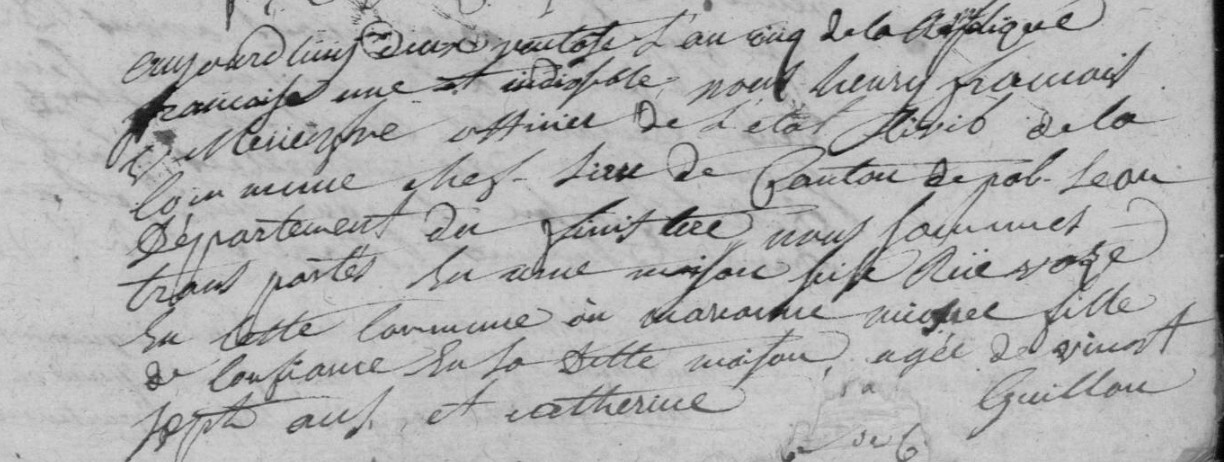 aujourdhuy deux vantose L'an cinq de la Republique
francaise une et indivisible, nous henry francois
officier De L'etat Sivil de la
Commune chef-Lieu de Canton de pol-Leon
Département du finistere, nous sommes
trans portés En une maison sise Rue
En Cette Commune ou marianne fille
de Confiance En la Ditte maison, agée de vingt
sept ans, et catherine Guillou